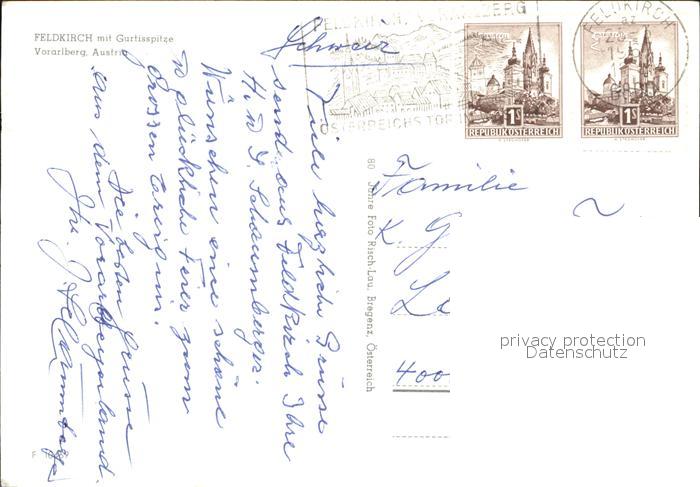 FELDKIRCH mit Gurtisspitze
Vorarlberg, Austria
Schweiz
Viele herzliche Grüsse
sendet aus Feldkirch Ihre
H. & D. Schaumberger.
Wünschen eine schöne
& glückliche Feier zum
grossen Ereignis.
Die besten Grüsse
aus dem Vorarlbergerland.
Ihr. J. Schaumberger
80 Jahre Foto Risch-Lau, Bregenz, Österreich
FELDKIRCH, VORARLBERG
ÖSTERREICHS TOR
FELDKIRCH
MARIAZELL
1S
REPUBLIK ÖSTERREICH
1S
REPUBLIK ÖSTERREICH
Familie
K. G
Le
400
privacy protection
Datenschutz